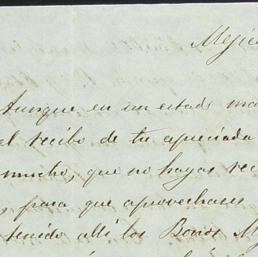 Mejic
Aunque en un estado ma
el recibo de tu apreciada
mucho, que no hayas rec
, para que aprovechases
tenido allí los Bonos M